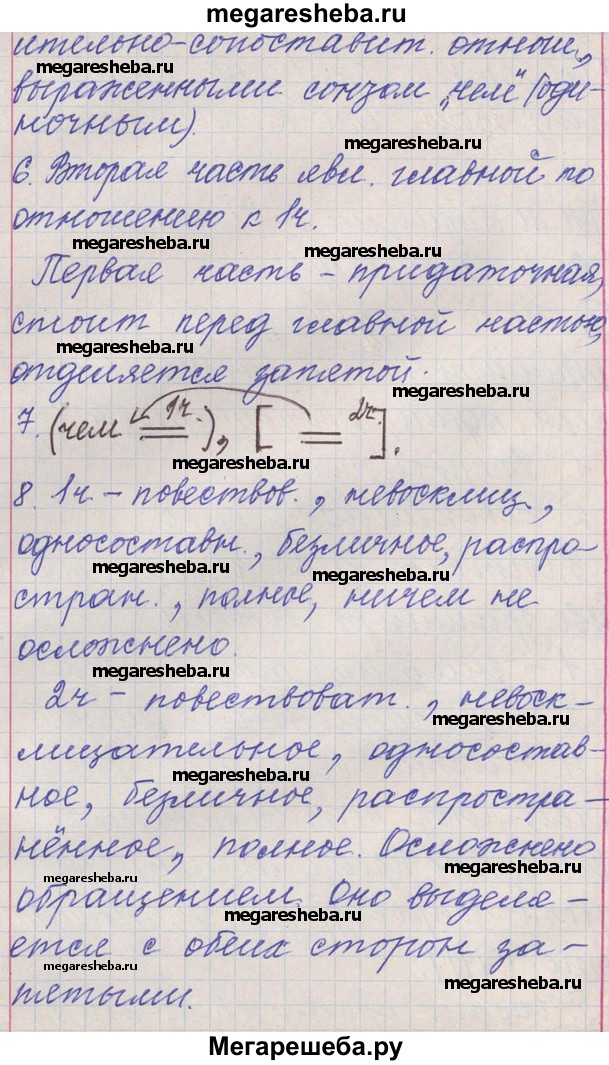 megaresheba.ru
ительно-сопоставит. отнош.,
megaresheba.ru
выраженными союзом „чем" (оди-
megaresheba.ru
ночным).
megaresheba.ru
6. Вторая часть явл. главной по
отношению к 1ч.
megaresheba.ru
Первая часть – придаточная,
стоит перед главной частью,
megaresheba.ru
отделяется запятой.
megaresheba.ru
7. (чем 1ч.), [ 2ч. ].
megaresheba.ru
8. 1ч – повествов., невосклиц.,
односоставн., безличное, распро-
megaresheba.ru
megaresheba.ru
стран., полное, ничем не
осложнено.
megaresheba.ru
2ч – повествоват., невоск-
megaresheba.ru
лицательное, односостав-
megaresheba.ru
ное, безличное, распростра-
нённое, полное. Осложнено
megaresheba.ru
megaresheba.ru
обращением. Оно выделя-
megaresheba.ru
ется с обеих сторон за-
megaresheba.ru
megaresheba.ru
пятыми.
Мегарешеба.ру